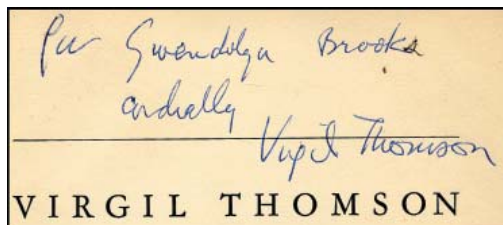 For Gwendolyn Brooks
cordially
Virgil Thomson
VIRGIL THOMSON